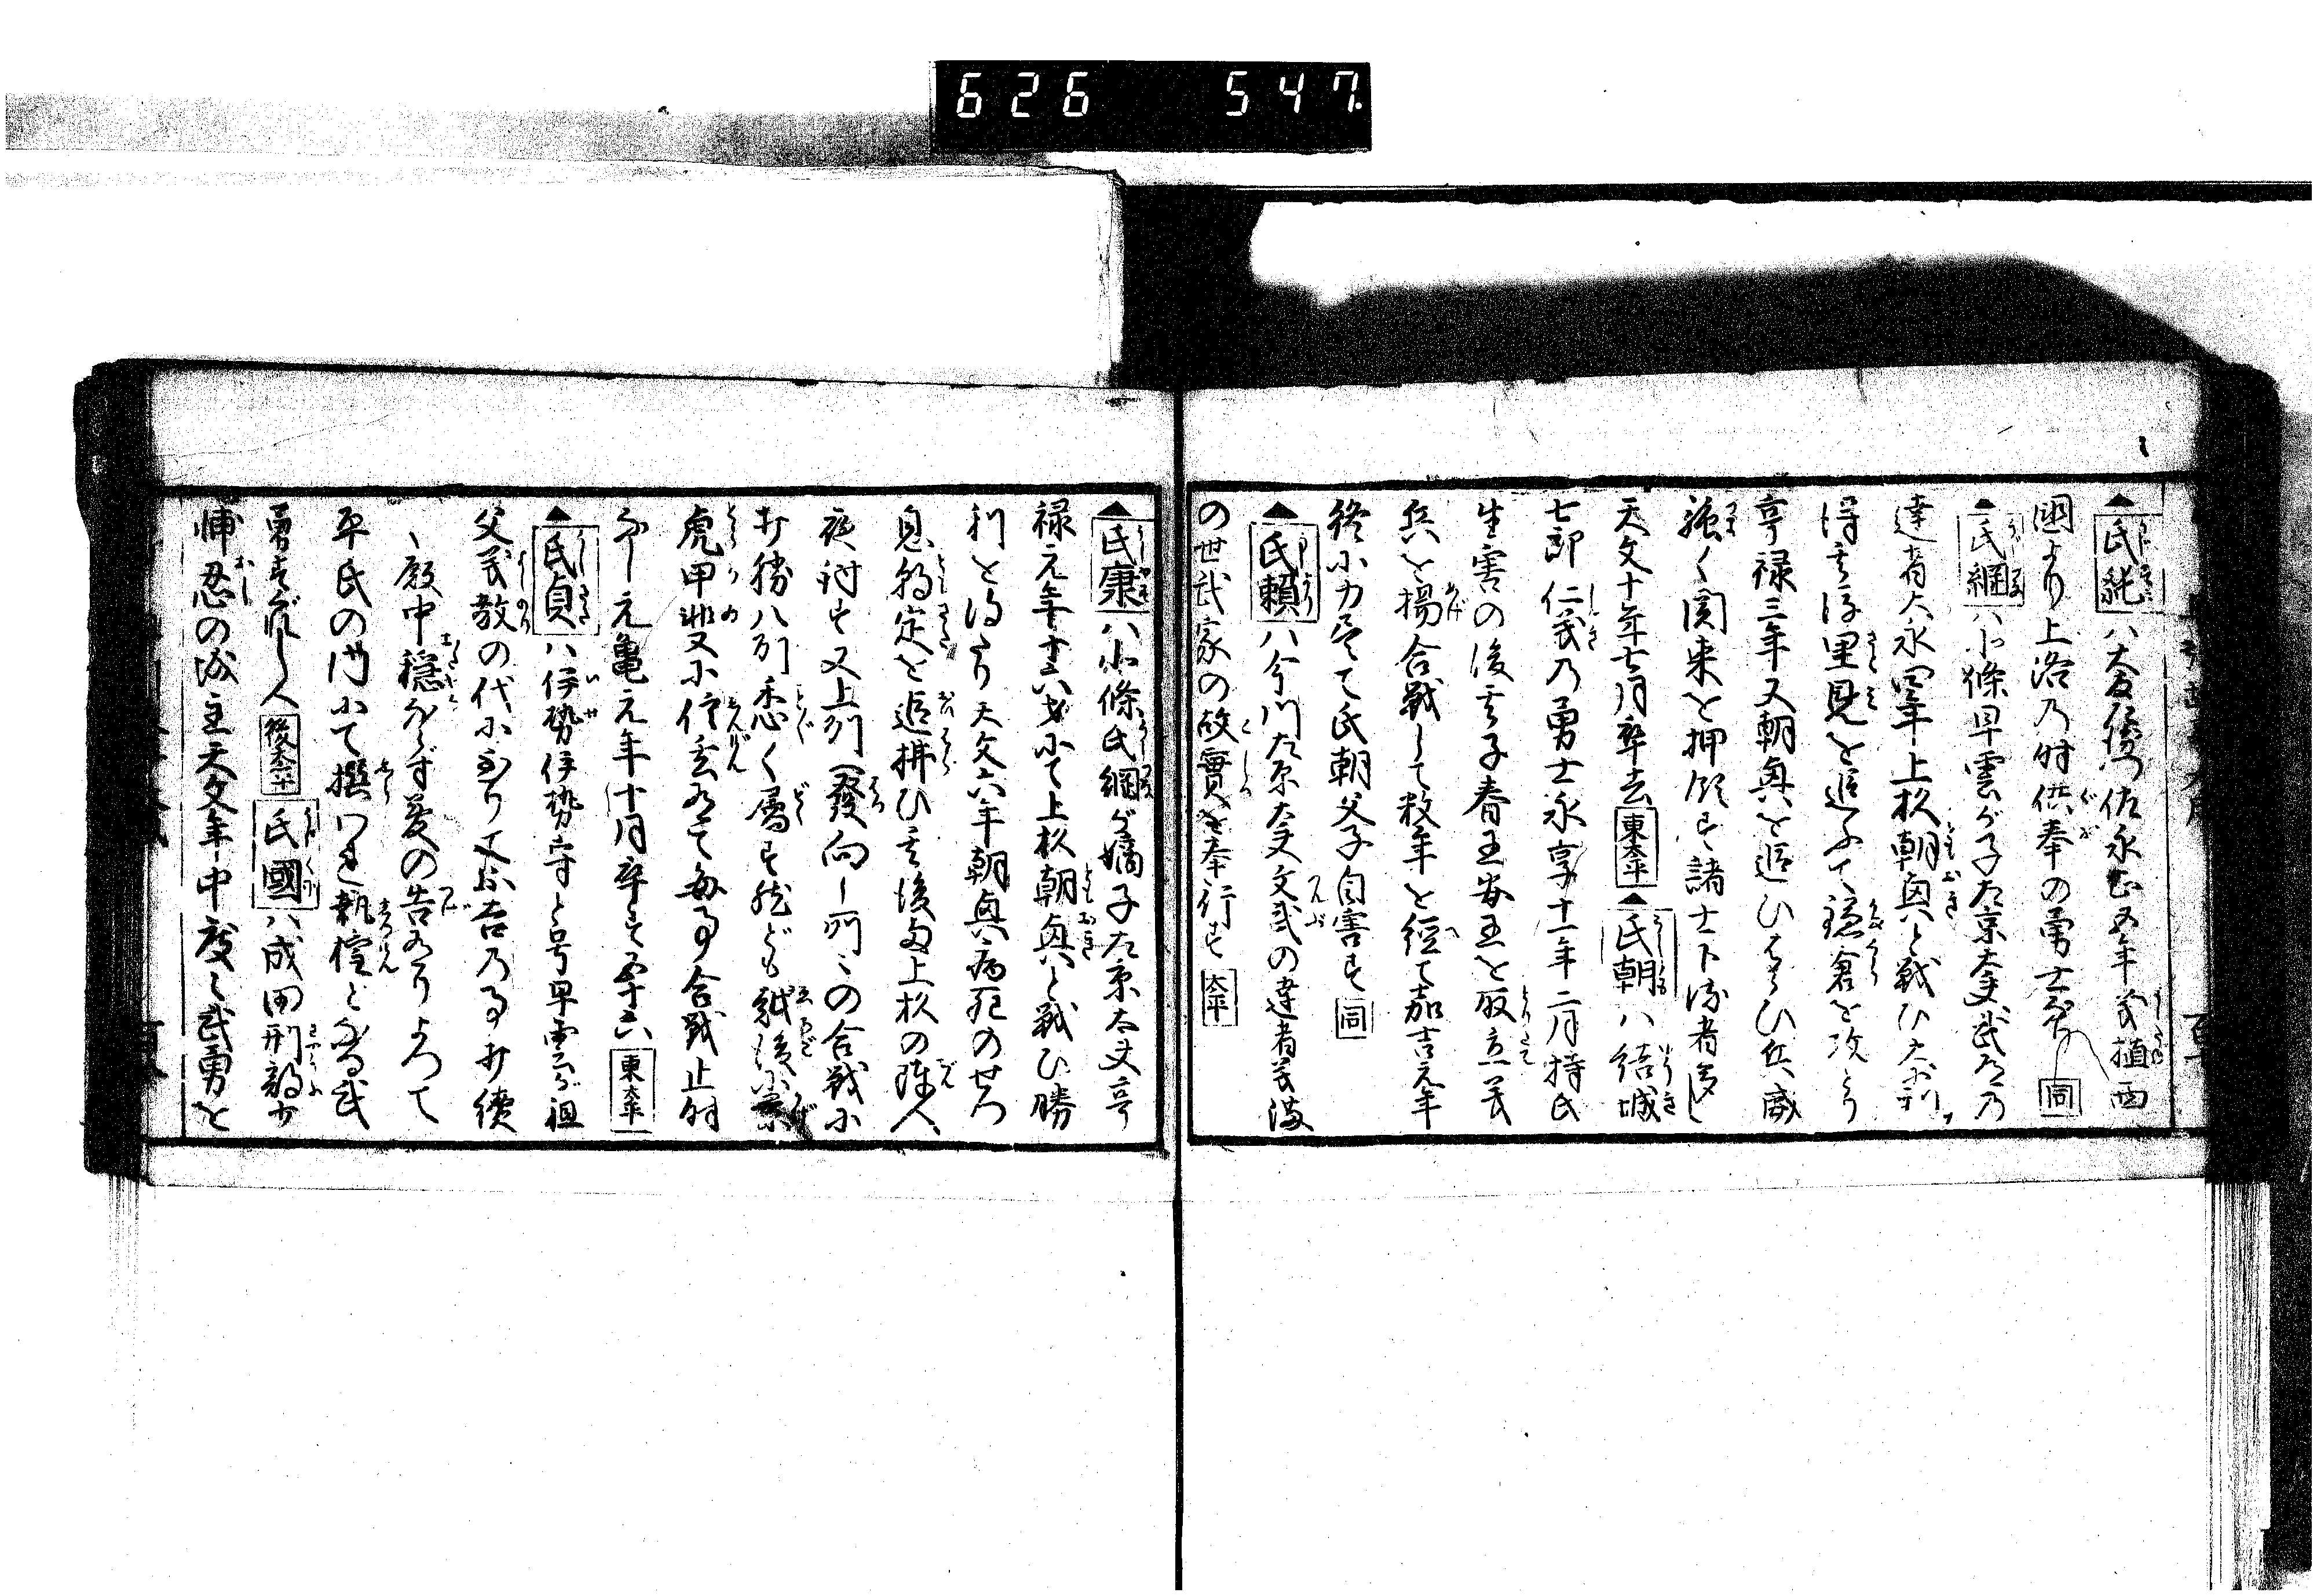 626 547
氏純ハ大友備後佐永正五年義植西
國より上洛乃時供奉の勇士 同
氏綱ハ北條早雲が子左京大夫武道乃
達者大永四年上杉朝興と戦ひ大利
得其後里見を追ふて鎌倉を攻とり
享禄三年又朝興を追ひはらひ兵威
強く関東を押領す諸士下
天文十年七月卒去 東太平 氏朝ハ結城
七郎仁義乃勇士永享十一年二月持氏
生害の後其子春王安王を取立義
兵を揚合戦して数年を経て嘉吉元年
終小力尽て氏朝父子自害す 同
氏頼ハ今川左京大夫文武の達者義満
の世武家の故實を奉行す 太平
氏康ハ北條氏綱が嫡子左京大夫享
禄元年十六才小て上杉朝興と戦ひ勝
利を得たり天文六年朝興病死のせつ
息朝定を追拂ひ其後両上杉の陣へ
夜討す又上州へ發向し所々の合戦小
打勝八州悉く属す然ども越後景
虎甲州又小信玄有て毎事合戦止時
なし元亀元年十月卒す五十六 東太平
氏貞ハ伊勢伊勢守と号早雲が祖
父義教の代小至り不吉乃事打續
殿中穏ならず夢の告有りよつて
平氏の内小て撰ハれ執権となる武
勇すぐれし人 後太平 氏國ハ成田刑部少
輔忍の城主天文年中度々武勇を